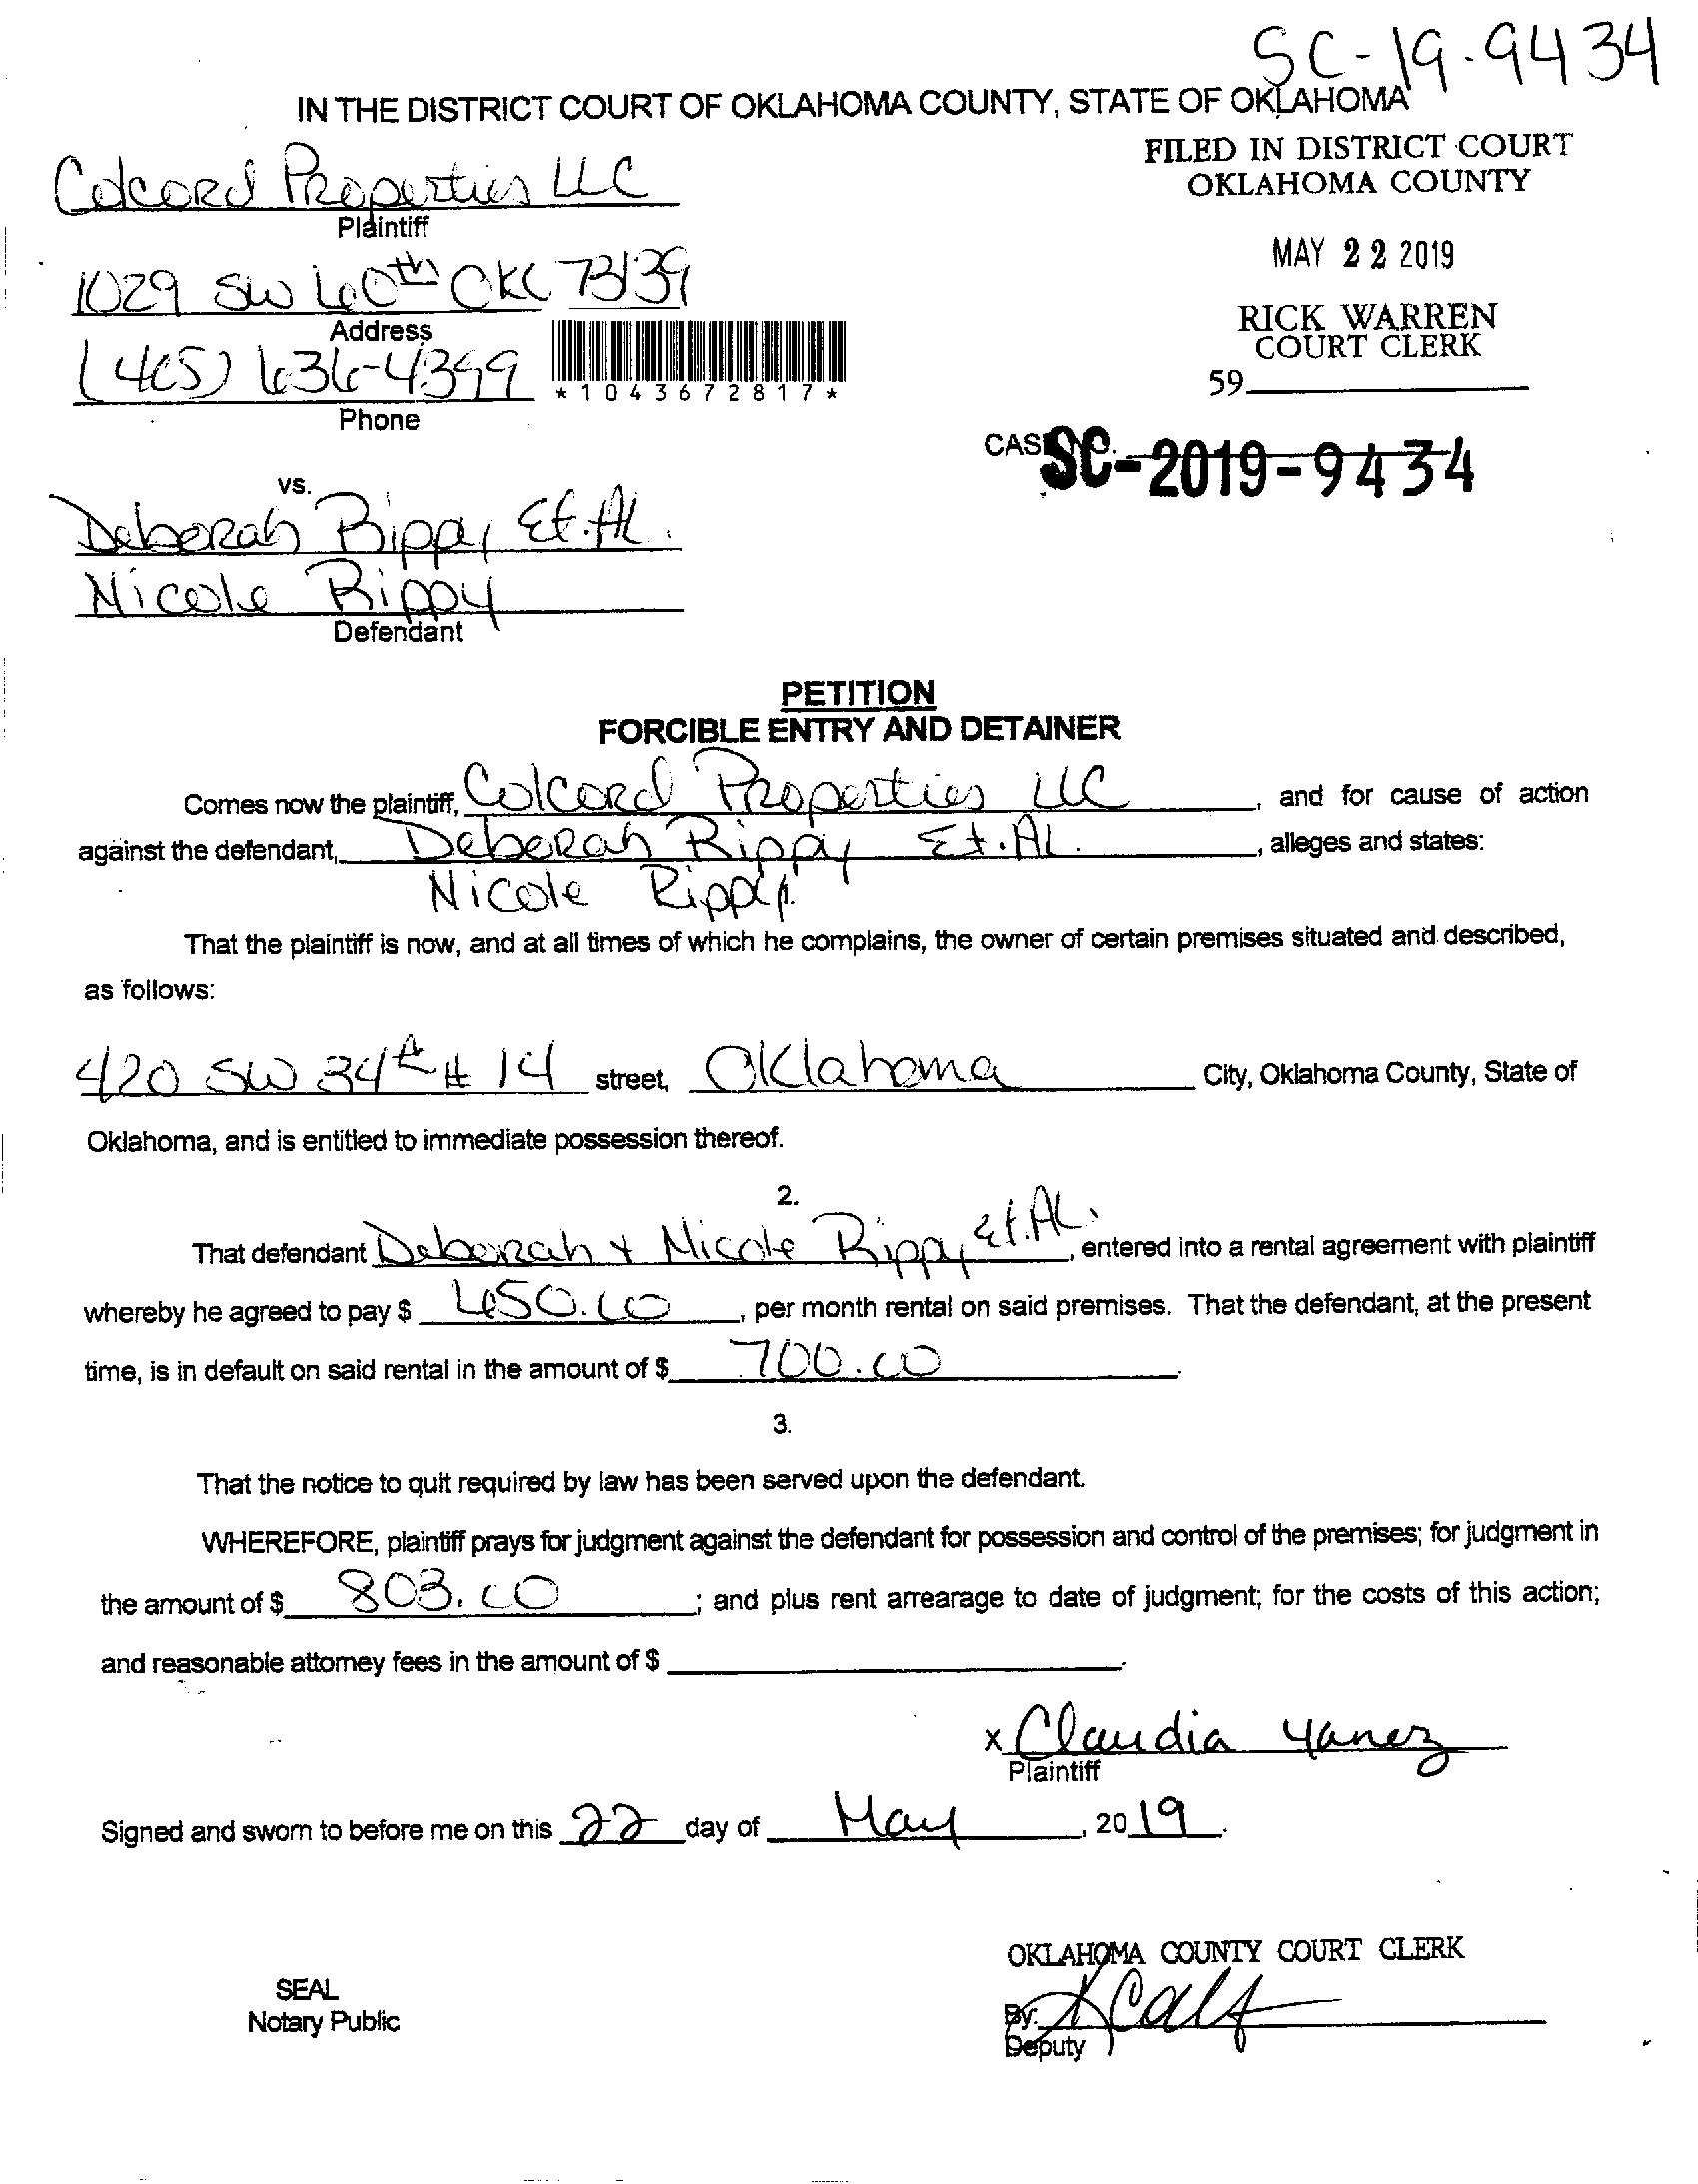 SC-19-9434
IN THE DISTRICT COURT OF OKLAHOMA COUNTY, STATE OF OKLAHOMA
FILED IN DISTRICT COURT
OKLAHOMA COUNTY
Colcord Properties LLC
Plaintiff
MAY 22 2019
1029 SW 60th OKC 73139
Address
RICK WARREN
COURT CLERK
(405) 636-4399
Phone
*1043672817*
59
CASE NO. SC-2019-9434
vs.
Deborah Rippy Et.AL.
Nicole Rippy
Defendant
PETITION
FORCIBLE ENTRY AND DETAINER
Comes now the plaintiff, Colcord Properties LLC, and for cause of action
against the defendant, Deborah Rippy Et.AL., alleges and states:
Nicole Rippy
That the plaintiff is now, and at all times of which he complains, the owner of certain premises situated and described,
as follows:
420 SW 34th # 14 street, Oklahoma City, Oklahoma County, State of
Oklahoma, and is entitled to immediate possession thereof.
2.
That defendant Deborah + Nicole Rippy Et.AL., entered into a rental agreement with plaintiff
whereby he agreed to pay $ 650.00, per month rental on said premises. That the defendant, at the present
time, is in default on said rental in the amount of $ 700.00.
3.
That the notice to quit required by law has been served upon the defendant.
WHEREFORE, plaintiff prays for judgment against the defendant for possession and control of the premises; for judgment in
the amount of $ 803.00; and plus rent arrearage to date of judgment; for the costs of this action;
and reasonable attorney fees in the amount of $
x Claudia Yanez
Plaintiff
Signed and sworn to before me on this 22 day of May, 2019.
OKLAHOMA COUNTY COURT CLERK
SEAL
Notary Public
By:
Deputy